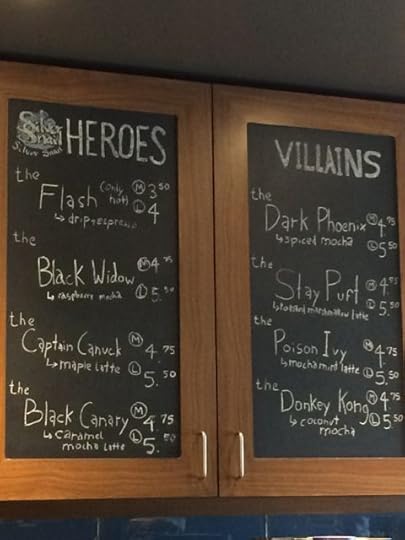 Silver Snail
Silver Snail
HEROES
the
Flash (only hot) M 3.50
↳ drip+espresso L 4
the
Black Widow M 4.75
↳ raspberry mocha L 5.50
the
Captain Canuck M 4.75
↳ maple latte L 5.50
the
Black Canary M 4.75
↳ caramel L 5.50
mocha latte
VILLAINS
the
Dark Phoenix M 4.75
↳ spiced mocha L 5.50
the
Stay Puft M 4.75
↳ toasted marshmallow latte L 5.50
the
Poison Ivy M 4.75
↳ mocha mint latte L 5.50
the
Donkey Kong M 4.75
↳ coconut L 5.50
mocha